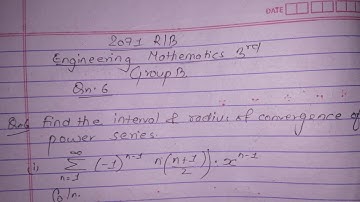 DATE
2071 R/B
Engineering Mathematics 3rd
Group B
Qn. 6
Qn.6 Find the interval & radius of convergence of
power series.
(i) ∞ Σ n=1 (-1)^{n-1} n(n+1/2) · x^{n-1}
Soln.